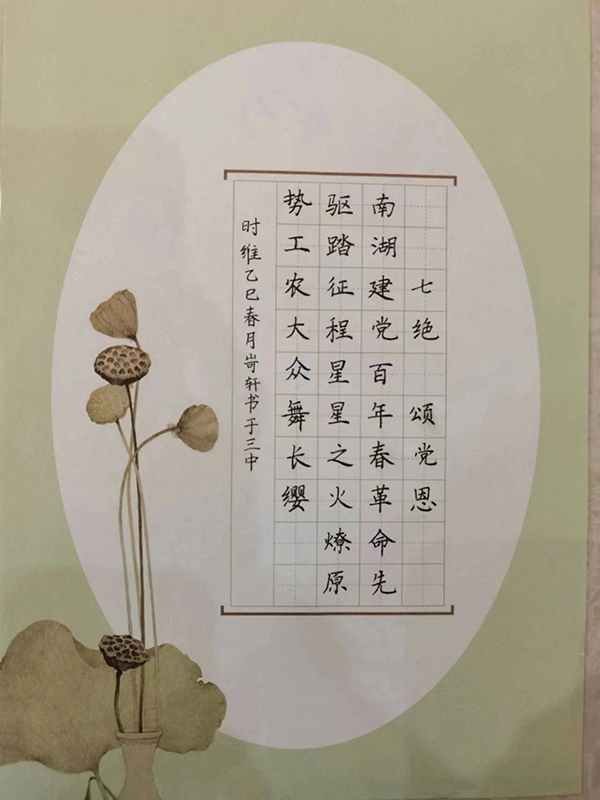 七绝 颂党恩
南湖建党百年春革命先
驱踏征程星星之火燎原
势工农大众舞长缨
时维乙巳春月岢轩书于三中